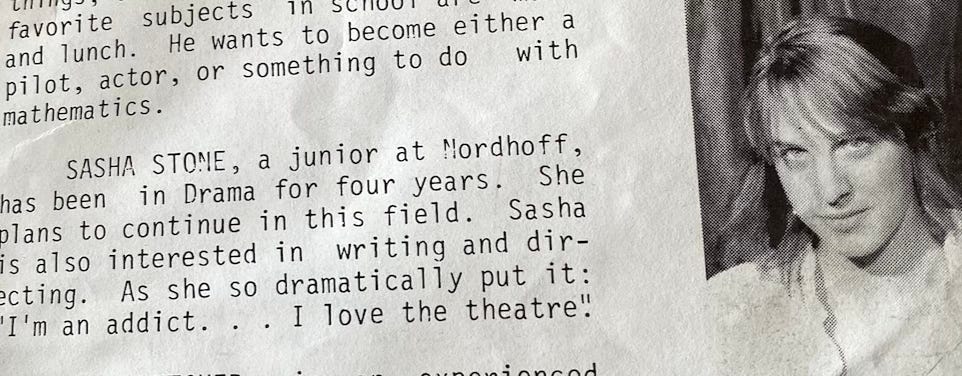 things,
favorite subjects in school are
and lunch. He wants to become either a
pilot, actor, or something to do with
mathematics.
SASHA STONE, a junior at Nordhoff,
has been in Drama for four years. She
plans to continue in this field. Sasha
is also interested in writing and dir-
ecting. As she so dramatically put it:
"I'm an addict. . . I love the theatre".
experienced